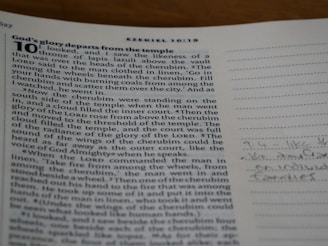 EZEKIEL 10:19
God's glory departs from the temple
10 I looked, and I saw the likeness of a
throne of lapis lazuli above the vault
that was over the heads of the cherubim. 2 The
LORD said to the man clothed in linen, 'Go in
among the wheels beneath the cherubim. Fill
your hands with burning coals from among the
cherubim and scatter them over the city.' And as
I watched, he went in.
3 Now the cherubim were standing on the
south side of the temple when the man went
in, and a cloud filled the inner court. 4 Then the
glory of the LORD rose from above the cherubim
and moved to the threshold of the temple. The
cloud filled the temple, and the court was full
of the radiance of the glory of the LORD. 5 The
sound of the wings of the cherubim could be
heard as far away as the outer court, like the
voice of God Almighty when he speaks.
6 When the LORD commanded the man in
linen, 'Take fire from among the wheels, from
among the cherubim,' the man went in and
stood beside a wheel. 7 Then one of the cherubim
reached out his hand to the fire that was among
them. He took up some of it and put it into the
hands of the man in linen, who took it and went
out. 8 (Under the wings of the cherubim could
be seen what looked like human hands.)
9 I looked, and I saw beside the cherubim four
wheels, one beside each of the cherubim; the
wheels sparkled like topaz. 10 As for their
appearance, the four of them looked alike; each
9.4